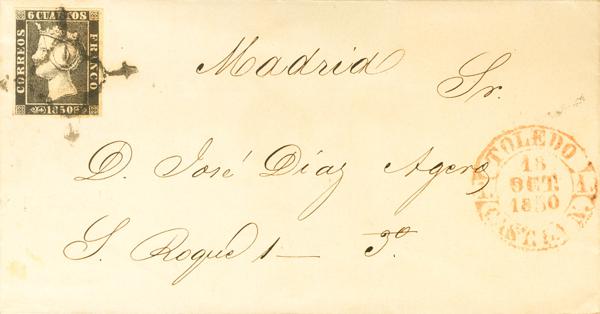 6 CUARTOS
CORREOS
FRANCO
1850
Madrid
Sr.
D. José Díaz Agero
S. Roque 1 — 3º
TOLEDO
18
OCT.
1850
CAST. LA N.